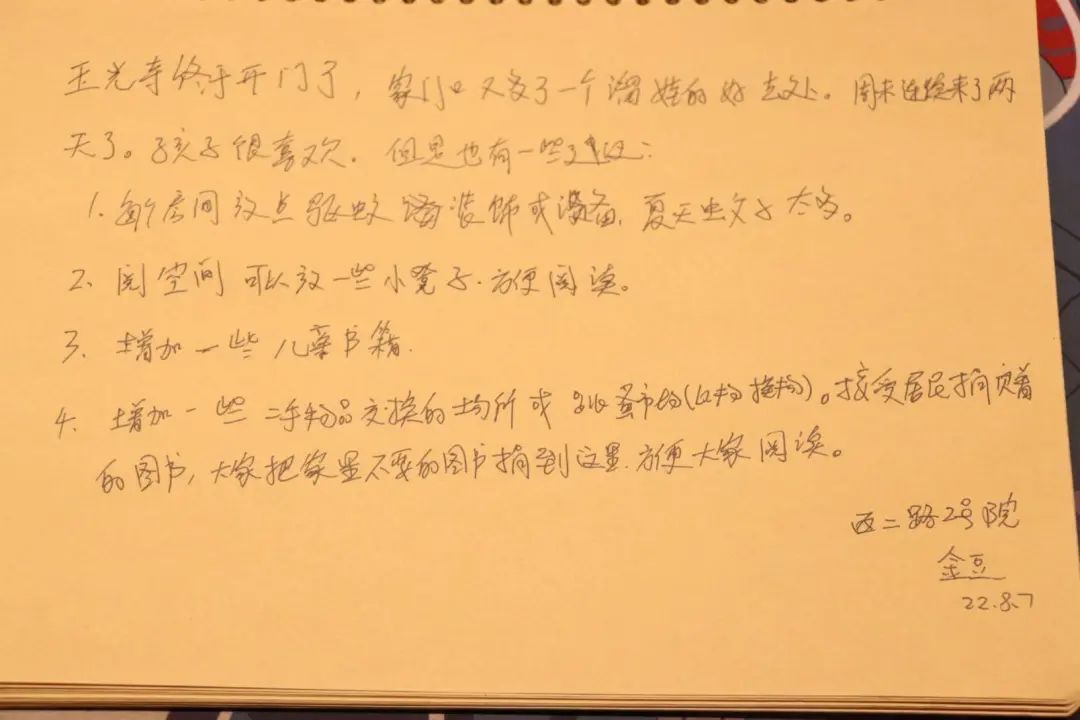 玉光寺终于开门了，家门口又多了一个溜娃的好去处。周末连续来了两
天了。孩子很喜欢。但是也有一些建议：
1. 每个房间放点驱蚊 装饰或设备，夏天蚊子太多。
2. 阅空间可以放一些小凳子.方便阅读。
3. 增加一些儿童书籍.
4. 增加一些二手物品交换的场所或跳蚤市场(以物换物)。接受居民捐赠
的图书，大家把家里不要的图书捐到这里.方便大家阅读。
西二路2号院
金豆
22.8.7